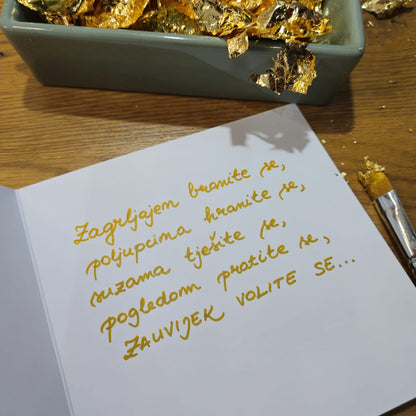 Zagrljajem branite se,
poljupcima hranite se,
suzama tješite se,
pogledom pratite se,
ZAUVIJEK VOLITE SE...